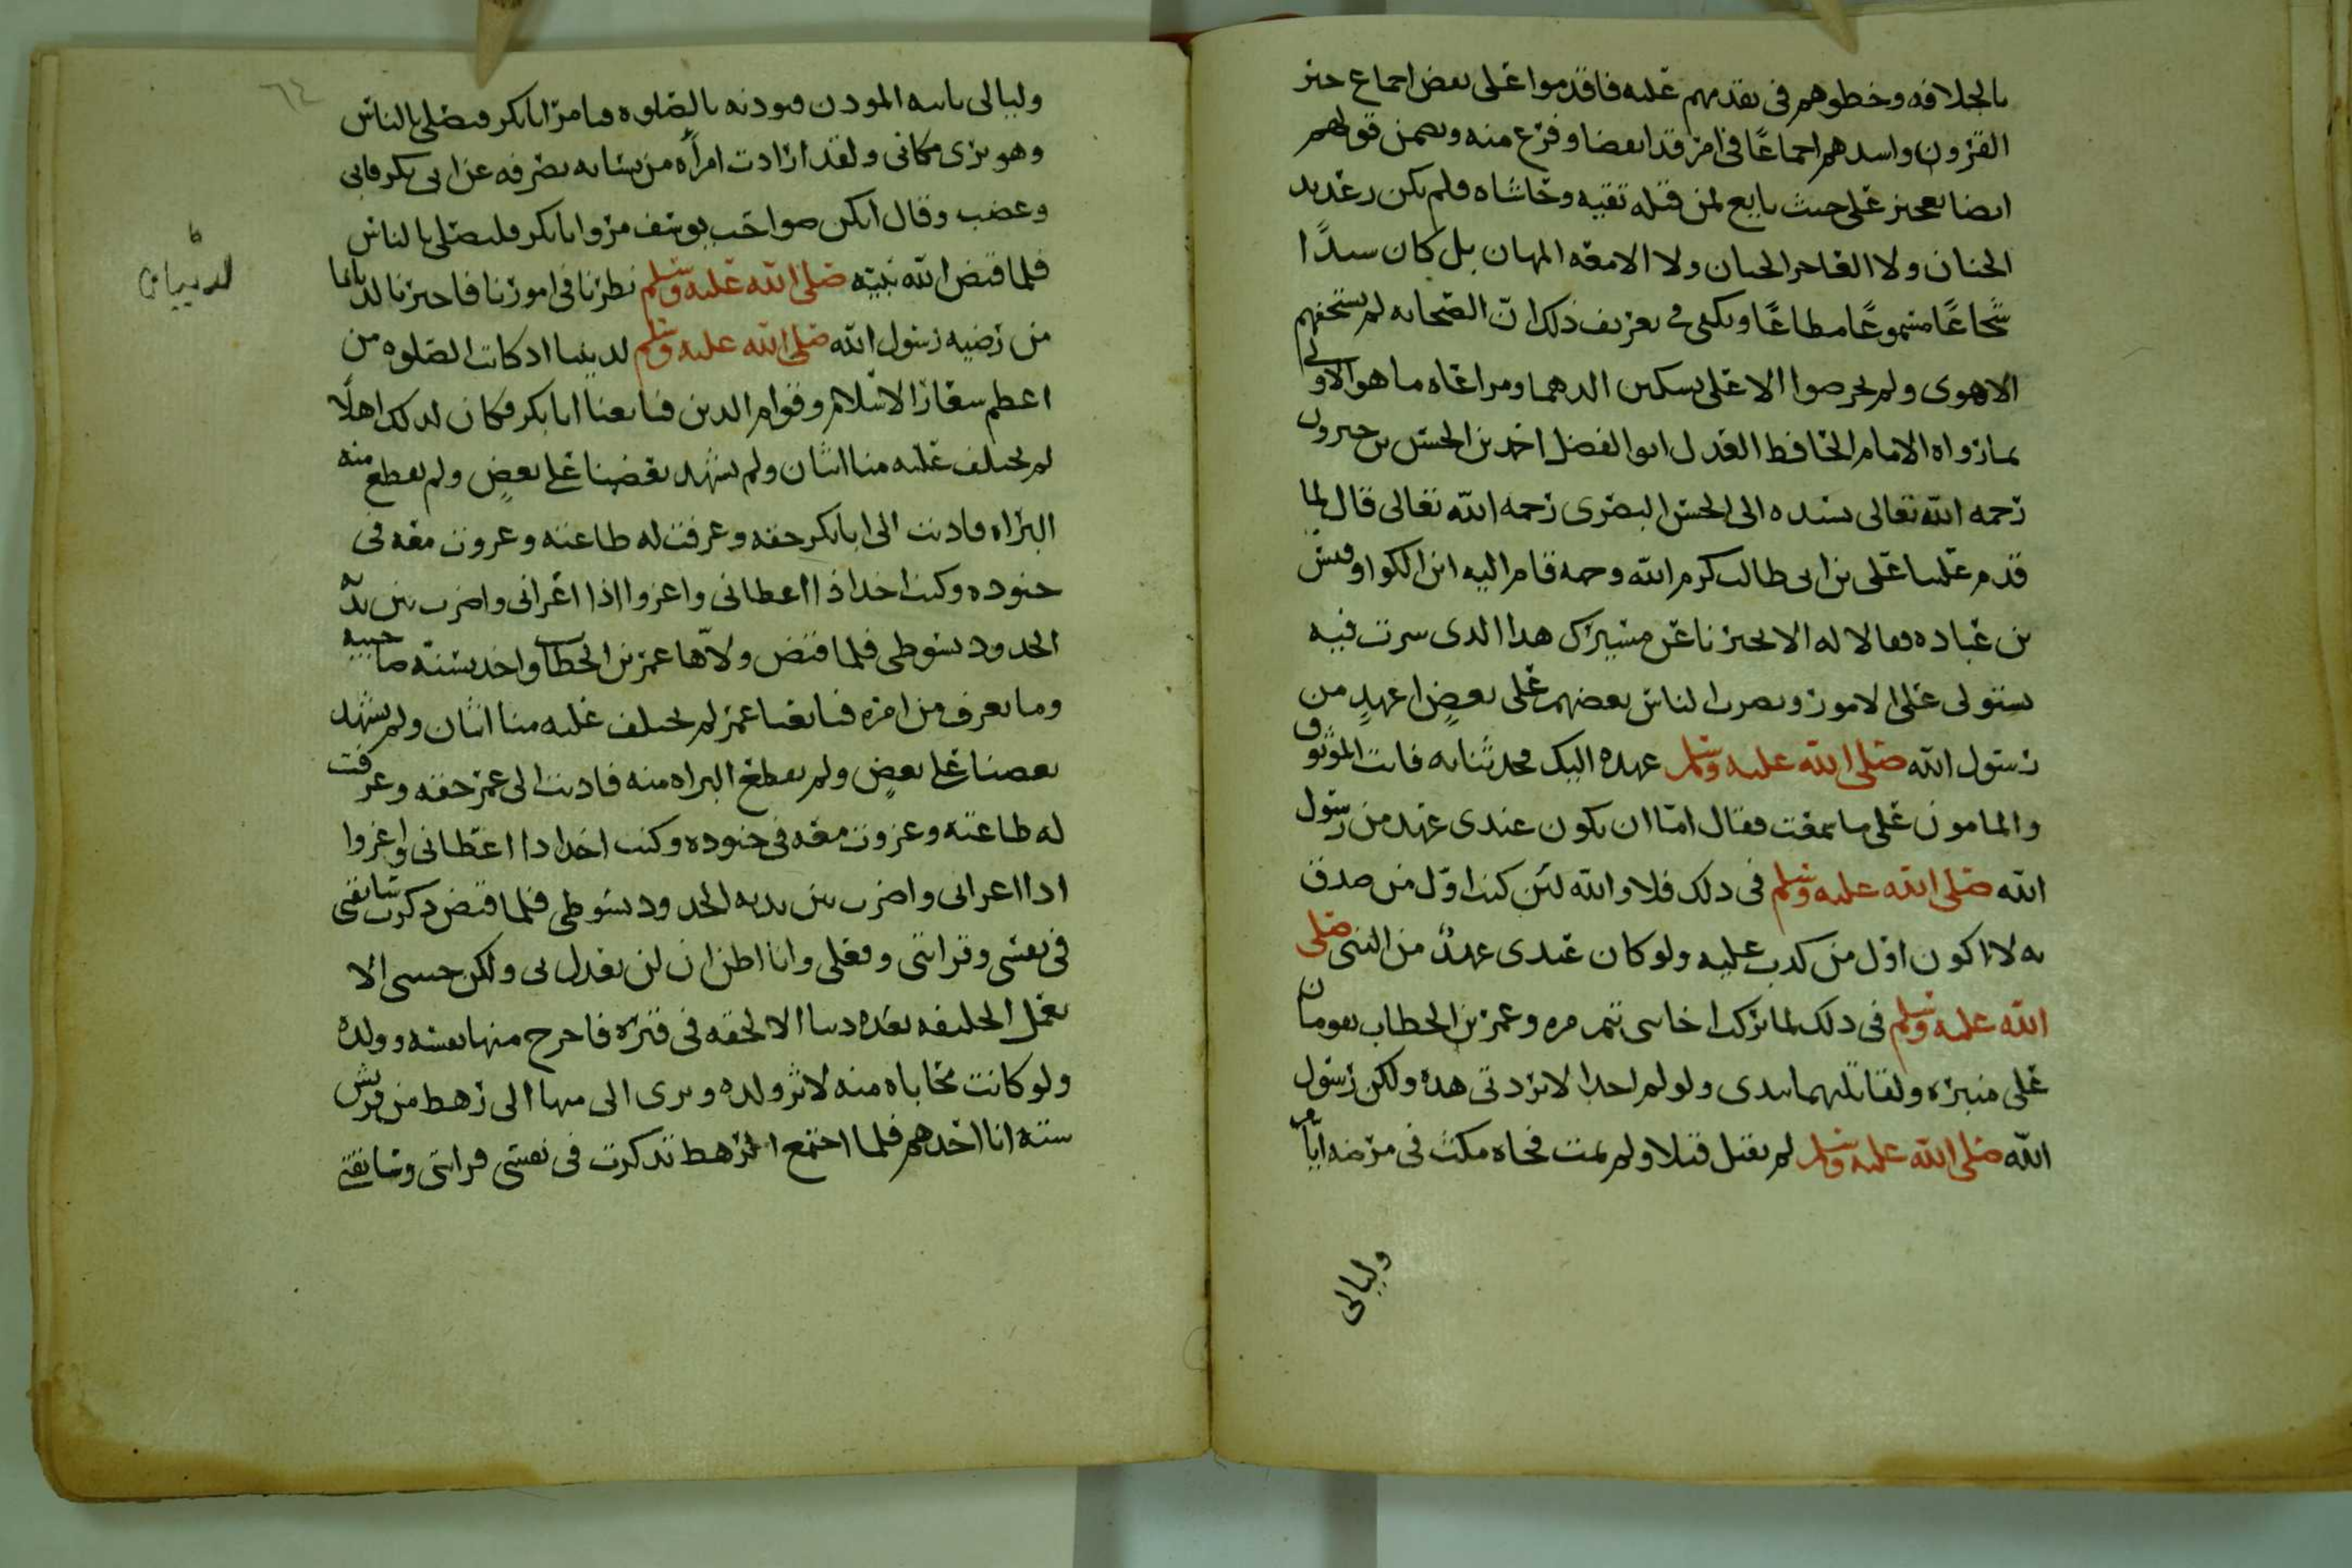 بالخلافه وخطوهم فى تقدمهم عليه فاقدموا على نقض اجماع خير
القرون واسندهم اجماعًا فى امر قد انقضا وفرغ منه وتضمن قولهم
ايضا تعجيز على حيث بايع لمن قبله تقيه وحاشاه فلم يكن رعديد
الجنان ولا العاجز الجبان ولا الامعه المهان بل كان سيدًا
شجاعًا مسموعًا مطاعًا ويكفى فى تعريف ذلك ان الصحابه لم يستخفهم
الاهوى ولم يحرصوا الا على تسكين الدهما ومراعاه ما هو الاولى
بما رواه الامام الحافظ العدل ابو الفضل احمد بن الحسن بن خيرون
رحمه الله تعالى بسنده الى الحسن البصرى رحمه الله تعالى قال لما
قدم علينا على بن ابى طالب كرم الله وجهه قام اليه ابن الكوا وقيس
بن عباده فقالا له الا تخبرنا عن مسيرك هذا الذى سرت فيه
تستولى على الامور وتضرب الناس بعضهم على بعضٍ اعهدٍ من
رسول الله صلى الله عليه وسلم عهده اليك فحدثنا به فانت الموثوق
والمامون على ما سمعت فقال امّا ان يكون عندى عهد من رسول
الله صلى الله عليه وسلم فى ذلك فلا والله لئن كنت اوّل من صدق
به لا اكون اول من كذب عليه ولو كان عندى عهدٌ من النبى صلى
الله عليه وسلم فى ذلك لما تركت اخا بنى تيم بن مره وعمر بن الخطاب يقومان
على منبره ولقاتلتهما بيدى ولو لم اجد الا بردتى هذه ولكن رسول
الله صلى الله عليه وسلم لم يقتل قتلا ولم يمت فجاه مكث فى مرضه ايّامًا
وليالى
وليالى ياتيه الموذن فيوذنه بالصلوه فيامر ابابكر فيصلى بالناس
وهو يرى مكانى ولقد ارادت امرأه من نسائه تصرفه عن ابى بكر فابى
وغضب وقال انكن صواحب يوسف مروا ابابكر فليصلى بالناس
فلما قبض الله نبيّه صلى الله عليه وسلم نظرنا فى امورنا فاخترنا لدنيانا
من رضيه رسول الله صلى الله عليه وسلم لديننا اذ كانت الصلوه من
اعظم شعار الاسلام وقوام الدين فبايعنا ابابكر فكان لذلك اهلًا
لم يختلف عليه منا اثنان ولم يشهد بعضنا على بعضٍ ولم يقطع منه
البراه فاديت الى ابابكر حقه وعرفت له طاعته وغزوت معه فى
جنوده وكنت اخذ اذا اعطانى واغزوا اذا اغزانى واضرب بين يديه
الحدود بسوطى فلما قبض ولّاها عمر بن الخطاب واخذ بسنّه صاحبه
وما يعرف من امره فبايعنا عمر لم يختلف عليه منا اثنان ولم يشهد
بعضنا على بعضٍ ولم يقطع البراه منه فاديت الى عمر حقه وعرفت
له طاعته وغزوت معه فى جنوده وكنت اخذ اذا اعطانى واغزوا
اذا اغزانى واضرب بين يديه الحدود بسوطى فلما قبض ذكرت سابقتى
فى نفسى وقرابتى وفعلى وانا اظن ان لن يعدل بى ولكن خشى الا
يعمل الخليفه بعده ذنبا الا لحقه فى قبره فاخرج منها نفسه وولده
ولو كانت محاباه منه لاثر ولده وبرى الى منها الى رهط من قريش
سته انا احدهم فلما اجتمع الرهط تذكرت فى نفسى قرابتى وسابقتى